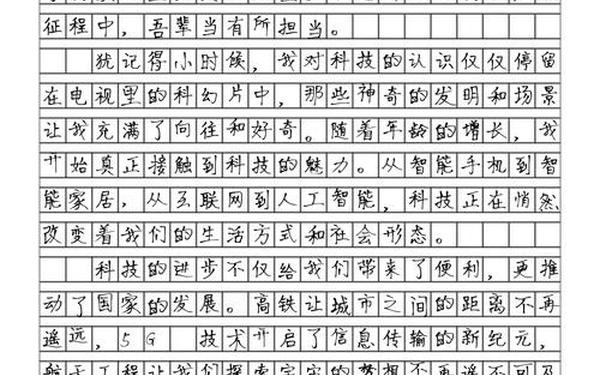 征程中，吾辈当有所担当。
犹记得小时候，我对科技的认识仅仅停留
在电视里的科幻片中，那些神奇的发明和场景
让我充满了向往和好奇。随着年龄的增长，我
开始真正接触到科技的魅力。从智能手机到智
能家居，从互联网到人工智能，科技正在悄然
改变着我们的生活方式和社会形态。
科技的进步不仅给我们带来了便利，更推
动了国家的发展。高铁让城市之间的距离不再
遥远，5G 技术开启了信息传输的新纪元，
航天工程让我们探索宇宙的梦想不再遥不可及